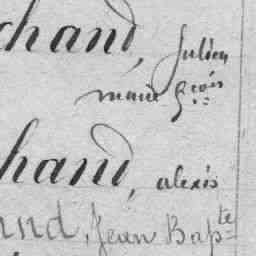 chand, Julien
marie Fçois
hand, alexis
and, Jean Bapte